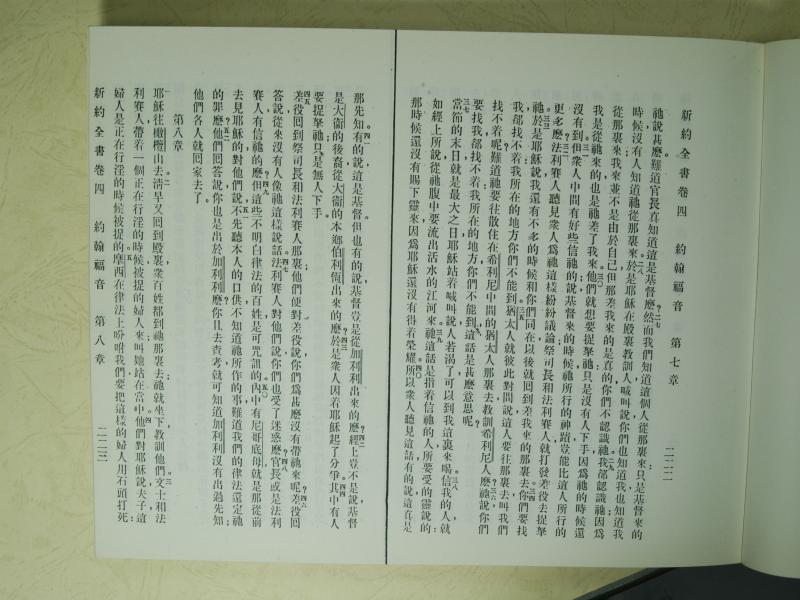 新約全書卷四　約翰福音　第七章　二二二
祂說甚麽難道官長真知道這是基督麽？二七然而我們知道這個人從那裏來只是基督來的
時候沒有人知道祂從那裏來；二八於是耶穌在殿裏教訓人喊叫說你們也知道我也知道我
從那裏來我來並不是由於自己但那差我來的是真的你們不認識祂。二九我卻認識祂因爲
我是從祂來的也是祂差了我來。三〇他們就想要捉拏祂只是沒有人下手因爲祂的時候還
沒有到。三一但衆人中間有好些信祂的說基督來的時候祂所行的神蹟豈能比這人所行的
更多麽？三二法利賽人聽見衆人爲祂這樣紛紛議論祭司長和法利賽人就打發差役去捉拏
祂。三三於是耶穌說我還有不多的時候和你們同在以後就回到差我來的那裏去。三四你們要找
我卻找不着我所在的地方你們不能到。三五猶太人就彼此對問說這人要往那裏去叫我們
找不着呢難道祂要往散住在希利尼中間的猶太人那裏去教訓希利尼人麽？三六祂說你們
要找我卻找不着我所在的地方你們不能到這話是甚麽意思呢
三七當節的末日就是最大之日耶穌站着喊叫說人若渴了可以到我這裏來喝。三八信我的人就
如經上所說從祂腹中要流出活水的江河來。三九祂這話是指着信祂的人所要受的靈說的
那時候還沒有賜下靈來因爲耶穌還沒有得着榮耀。四〇所以衆人聽見這話有的說這真是
那先知。四一有的說這是基督但也有的說基督豈是從加利利出來的麽？四二經上豈不是說基督
是大衞的後裔從大衞的本鄉伯利恆出來的麽？四三於是衆人因着耶穌起了分爭。四四其中有人
要捉拏祂只是無人下手。
四五差役回到祭司長和法利賽人那裏他們便對差役說你們爲甚麽沒有帶祂來呢？四六差役回
答說從來沒有人像祂這樣說話。四七法利賽人對他們說你們也受了迷惑麽？四八官長或是法利
賽人有信祂的麽？四九但這些不明白律法的百姓是可咒詛的。五〇內中有尼哥底母就是那從前
去見耶穌的對他們說、五一不先聽本人的口供不知道祂所作的事難道我們的律法還定祂
的罪麽？五二他們回答說你也是出於加利利麽你且去查考就可知道加利利沒有出過先知；
他們各人就回家去了。
第八章
耶穌往橄欖山去。二清早又回到殿裏衆百姓都到祂那裏去祂就坐下教訓他們。三文士和法
利賽人帶着一個正在行淫的時候被捉的婦人來叫她站在當中、四他們對耶穌說夫子這
婦人是正在行淫的時候被捉的。五摩西在律法上吩咐我們要把這樣的婦人用石頭打死；
新約全書卷四　約翰福音　第八章　二二三